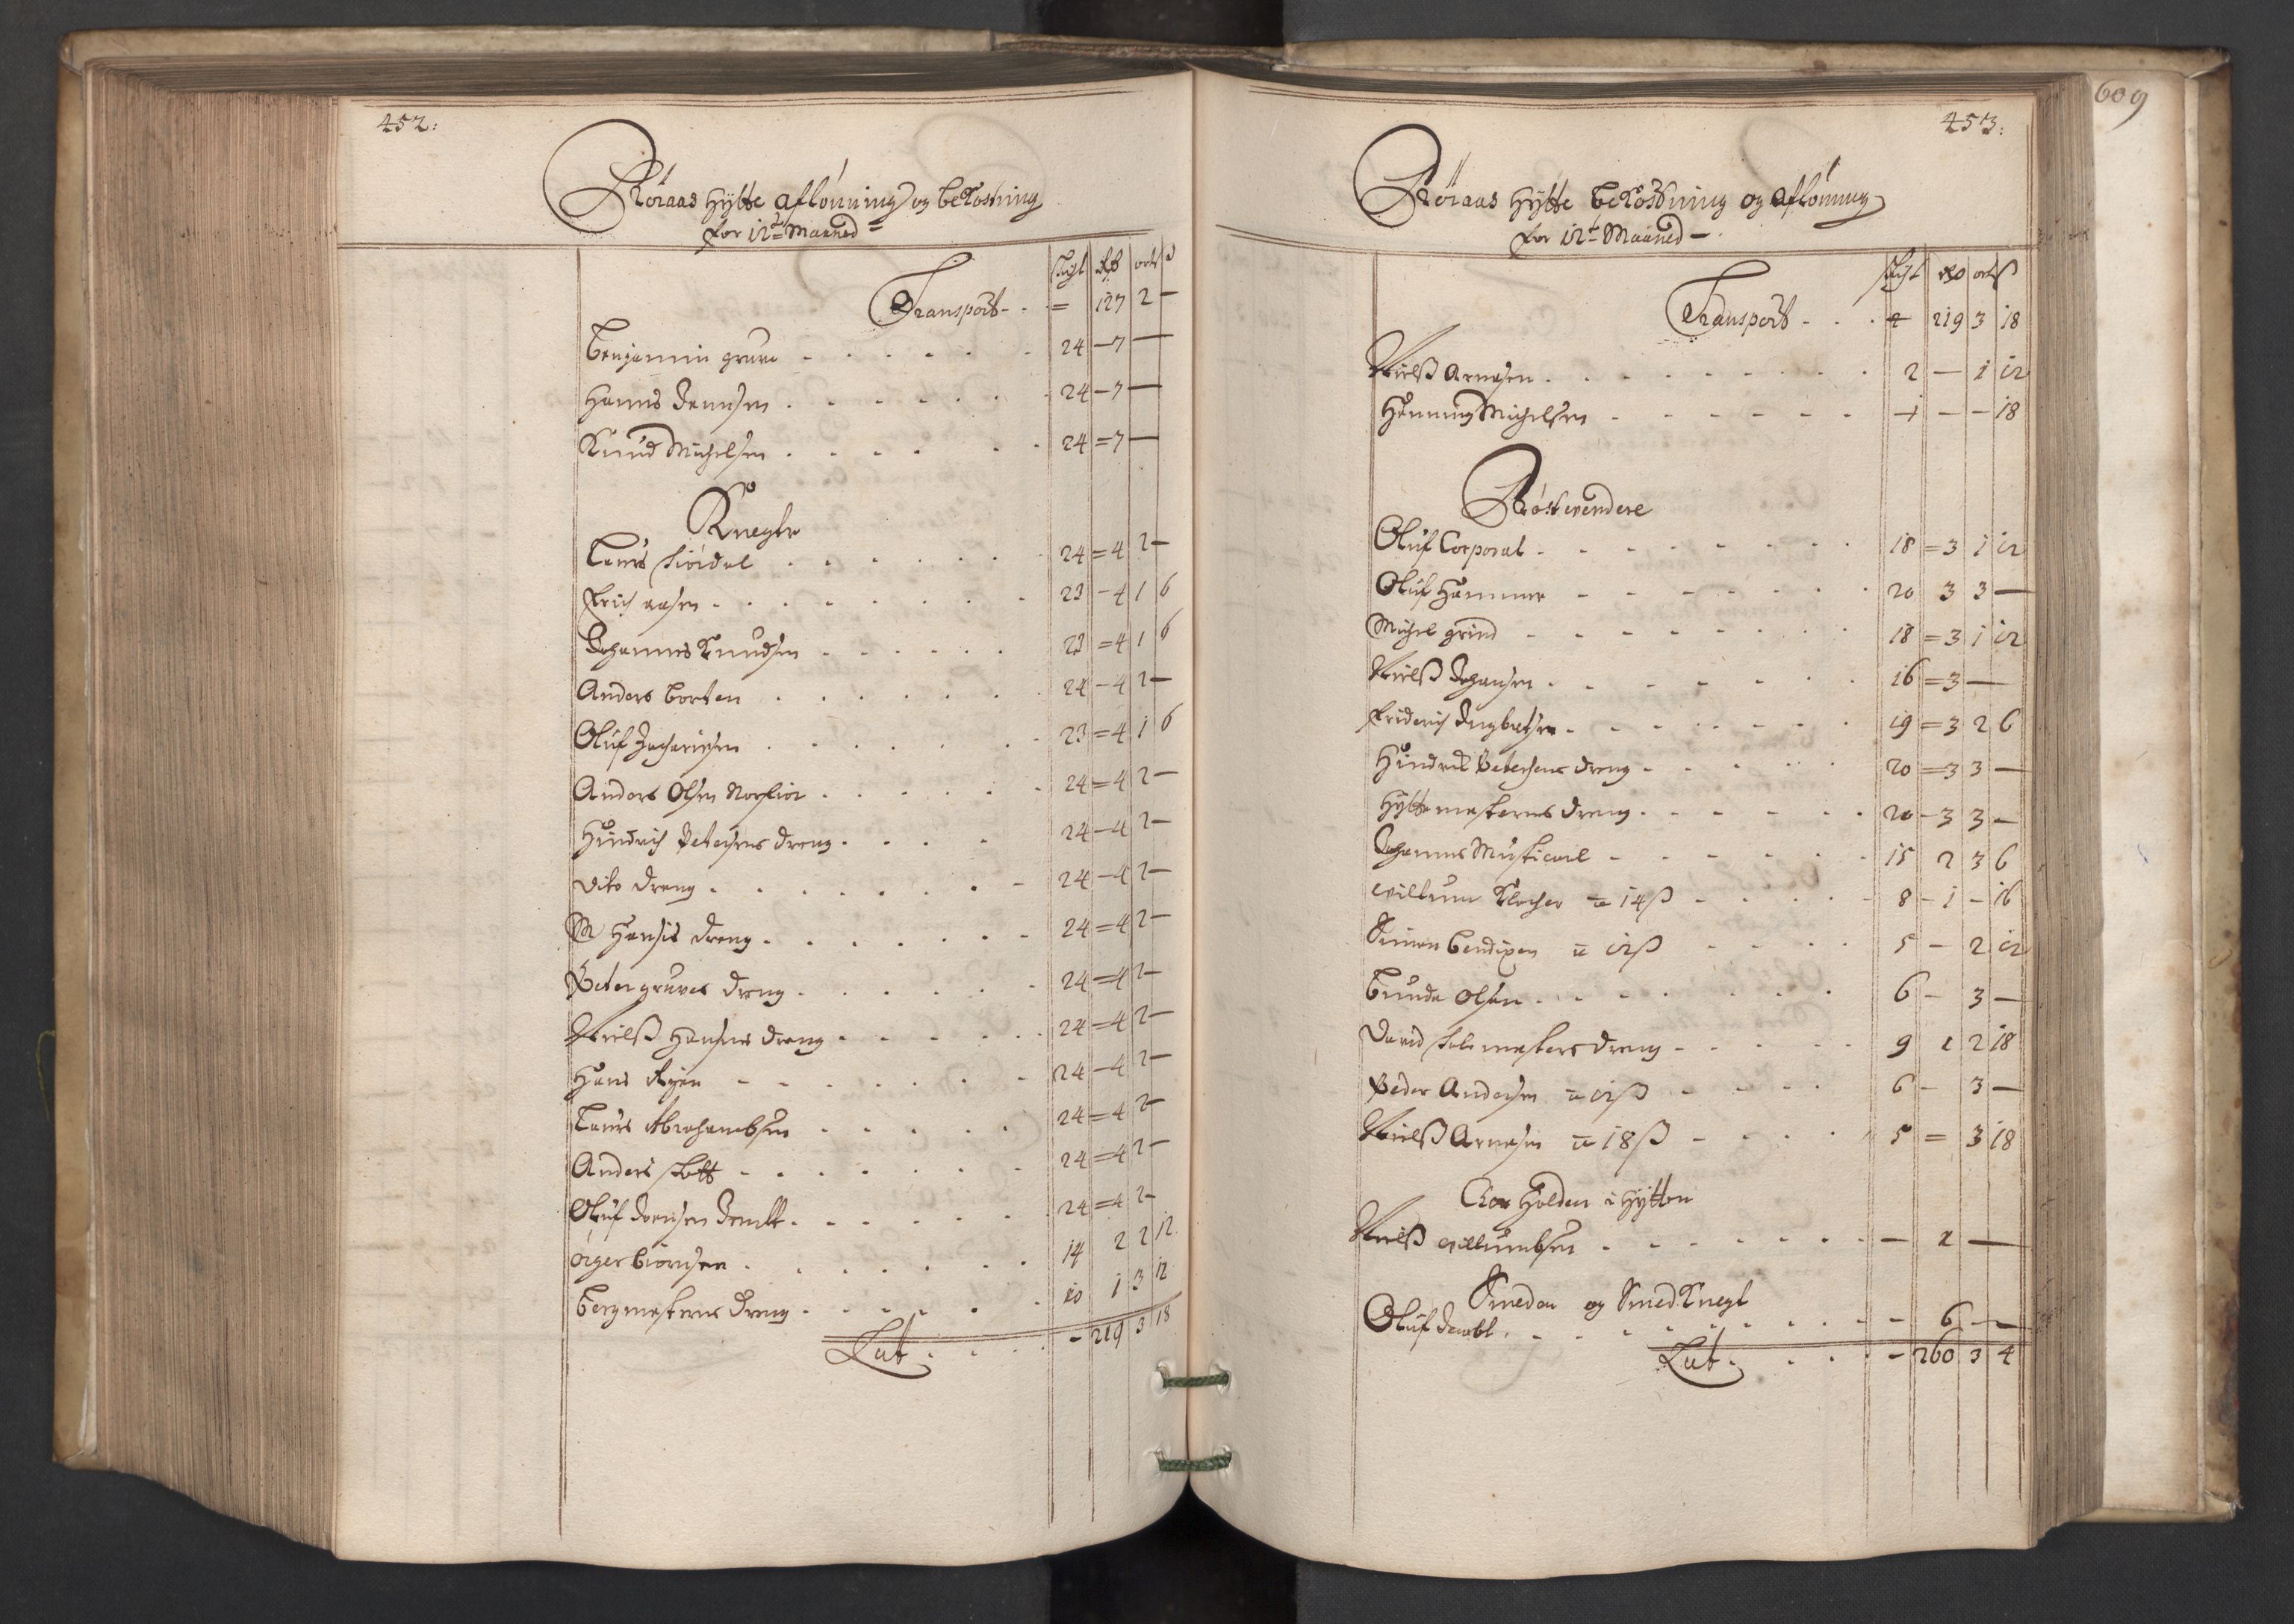 452:
Röraas Hytte aflönning og bekostning
for 12te Maaned
skyt rdr ort ß
Transport - - = 127 2 -
Benjamin gruve - - - - - 24 - 7 -
Hanns Jennsen - - - - - 24 - 7 -
Knud Michelsen - - - - - 24 = 7 -
Knegte
Laurs Siördal - - - - - 24 = 4 2 -
Erich aasen - - - - - 23 - 4 1 6
Johannes Knudsen - - - - - 23 = 4 1 6
Anders Borten - - - - - 24 - 4 2 -
Oluf Zachariesen - - - - - 23 = 4 1 6
Anders Olsen - - - - - 24 = 4 2 -
Hindrich Petersens dreng - - - - 24 - 4 2 -
Vits dreng - - - - - 24 - 4 2 -
M Hansis dreng - - - - - 24 = 4 2 -
Peter gruves dreng - - - - - 24 = 4 2 -
Nielß Hansens dreng - - - - - 24 = 4 2 -
Hans - - - - - 24 - 4 2 -
Laurs Abrahambsen - - - - - 24 = 4 2 -
Anders - - - - - 24 = 4 2 -
Oluf - - - - - 24 = 4 2 -
Biörnsen - - - - - 14 2 2 12
Bergmesterens dreng - - - - - 10 1 3 12
Lat - - - - 219 3 18
609
453:
Röraas Hytte bekostning og aflönning
for 12te Maaned -
skyt rdr ort ß
Transport - - - 219 3 18
Nielß Arnesen - - - - - 2 - 1 12
Henning Michelsen - - - - - 1 - - 18
Röstevendere
Oluf Corporal - - - - - 18 = 3 1 12
Oluf Hammer - - - - - 20 3 3 -
Michel grind - - - - - 18 = 3 1 12
Nielß Johansen - - - - - 16 = 3 -
Friderich Ingbretsen - - - - - 19 = 3 2 6
Hindrich Petersens dreng - - - - - 20 = 3 3 -
Hyttemesterens dreng - - - - - 20 - 3 3 -
Johannes Musicant - - - - - 15 2 3 6
Willum Klocher a 14 ß - - - - 8 - 1 - 16
Simen Bendixen a 12 ß - - - - 5 - 2 12
Gunde Olsen - - - - - 6 - 3 -
David Solemesters dreng - - - - - 9 1 2 18
Peder Andersen a 12 ß - - - - 6 - 3 -
Nielß Arnesen a 18 ß - - - - 5 = 3 18
Holden i Hytten
Nielß Willumbsen - - - - - - 2 -
Smeden og SmedKnegt
Oluf - - - - - - 6 - -
Lat - - - - 260 3 4